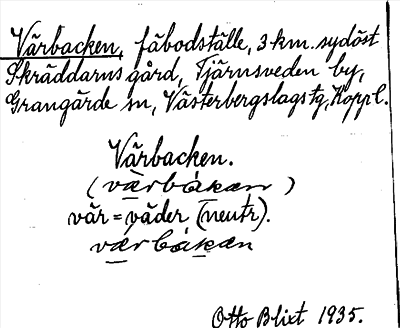 Vårbacken, fäbodställe, 3 km. sydöst
Skräddarns gård, Tjärnsveden by,
Grangärde sn, Västerbergslags tg, Kopp l.
Vårbacken.
(vàrbákan)
vår = väder (neutr).
vàrbákan
Otto Blixt 1935.